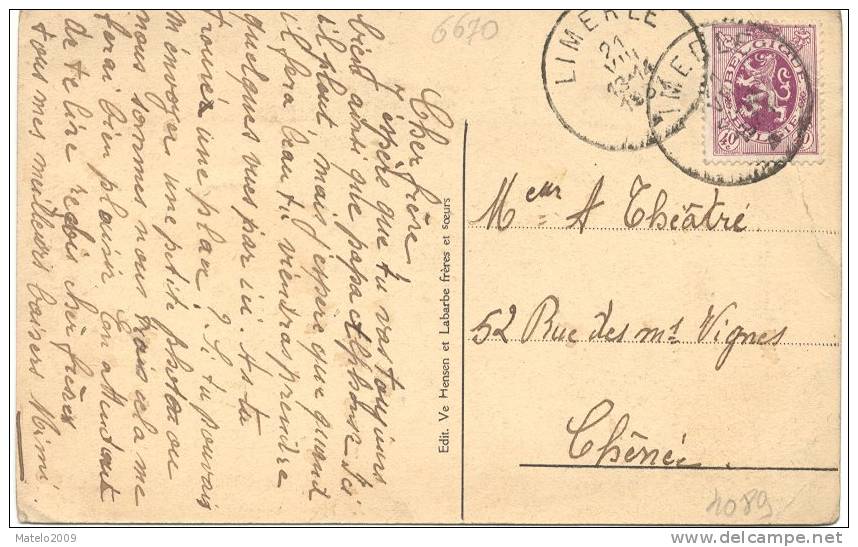 6670
LIMERLE
21
VIII
13-14
LIMERLE
BELGIQUE
BELGIË
40
Cher frère
J'espère que tu vas toujours
bien ainsi que papa et Alphonse Ici
il pleut, mais j'espère que quand
il fera beau tu viendras prendre
quelques vues par ici. As tu
trouvé une place ? Si tu pouvais
m'envoyer une petite photo ou
nous sommes nous trois cela me
ferai bien plaisir En attendant
de te lire reçois cher frère
tous mes meilleurs baisers Mimi.
Edit. Ve Hensen et Labarbe frères et sœurs
Meur A Théâtré
52 Rue des mts Vignes
Chênée
1089
Matelo2009
www.delcampe.net